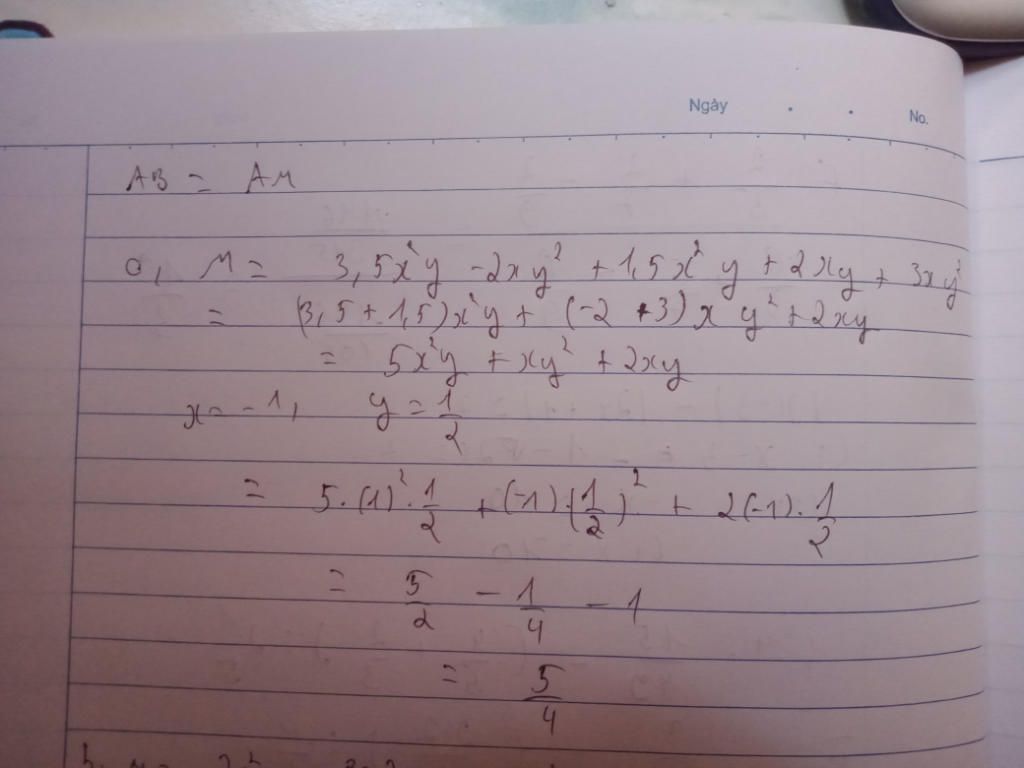 Ngày . . No.
AB = AM
a, M = 3,5x²y - 2xy² + 1,5x²y + 2xy + 3xy²
= (3,5 + 1,5)x²y + (-2 + 3)xy² + 2xy
= 5x²y + xy² + 2xy
x = -1, y = 1/2
= 5 · (1)² · 1/2 + (-1) · (1/2)² + 2(-1) · 1/2
= 5/2 - 1/4 - 1
= 5/4